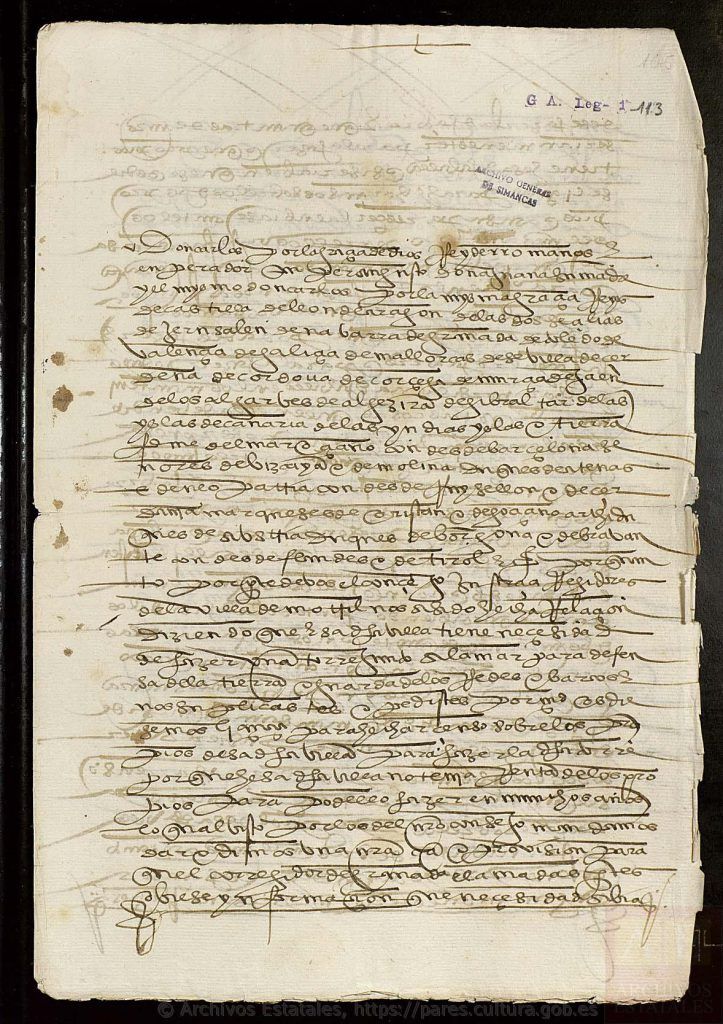 G A. Leg- 1º-113
ARCHIVO GENERAL
DE SIMANCAS
Don carlos por la gracia de dios Rey de rromanos
enperador doña juana su madre
y el mysmo don carlos por la mysma gracia Reyes
de castilla de leon de aragon de las dos seçilias
de jerusalen de navarra de granada de toledo de
valençia de galizia de mallorcas de sevilla de cer
deña de cordova de corcega de murçia de jaen
de los algarbes de algezira de gibraltar de las
yslas de canaria de las yndias yslas e tierra
firme del mar oçeano condes de barcelona se
ñores de vizcaya e de molina duques de atenas
e de neopatria condes de Ruysellon e de cer
dania marqueses de oristan e de goçiano archidu
ques de austria duques de borgoña e de bravan
te condes de flandes e de tirol por quan
to por parte de vos el conçejo justiçia Regidores
de la villa de motril nos a sido hecha Relaçion
diziendo que esa dicha villa tiene neçesidad
de hazer una torre junto a la mar para defen
sa de la tierra e guarda de los Redes e barcos
nos suplicastes e pedistes por merced os die
semos liçençia para hechar en so sobre los pro
pios de esa dicha villa para hazer la dicha torre
por que esa dicha villa no tenia Renta de los pro
pios para podello hazer en muchos años
lo qual visto por los del nuestro consejo mandamos
dar e dimos una nuestra carta e provision para
quel corregidor de granada llamadas partes
obiese ynformaçion que neçesidad abia
© Archivos Estatales, https://pares.cultura.gob.es
ARCHIVOS
ESTATALES